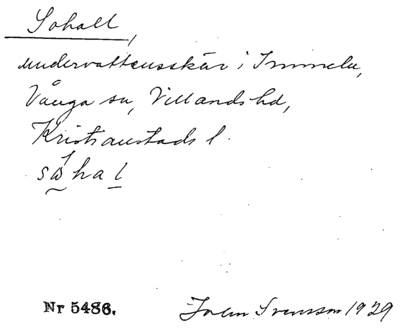 Sohall,
undervattensskär i Immeln,
Vånga sn, Villands hd,
Kristianstads l.
Nr 5486.
John Svensson 1929